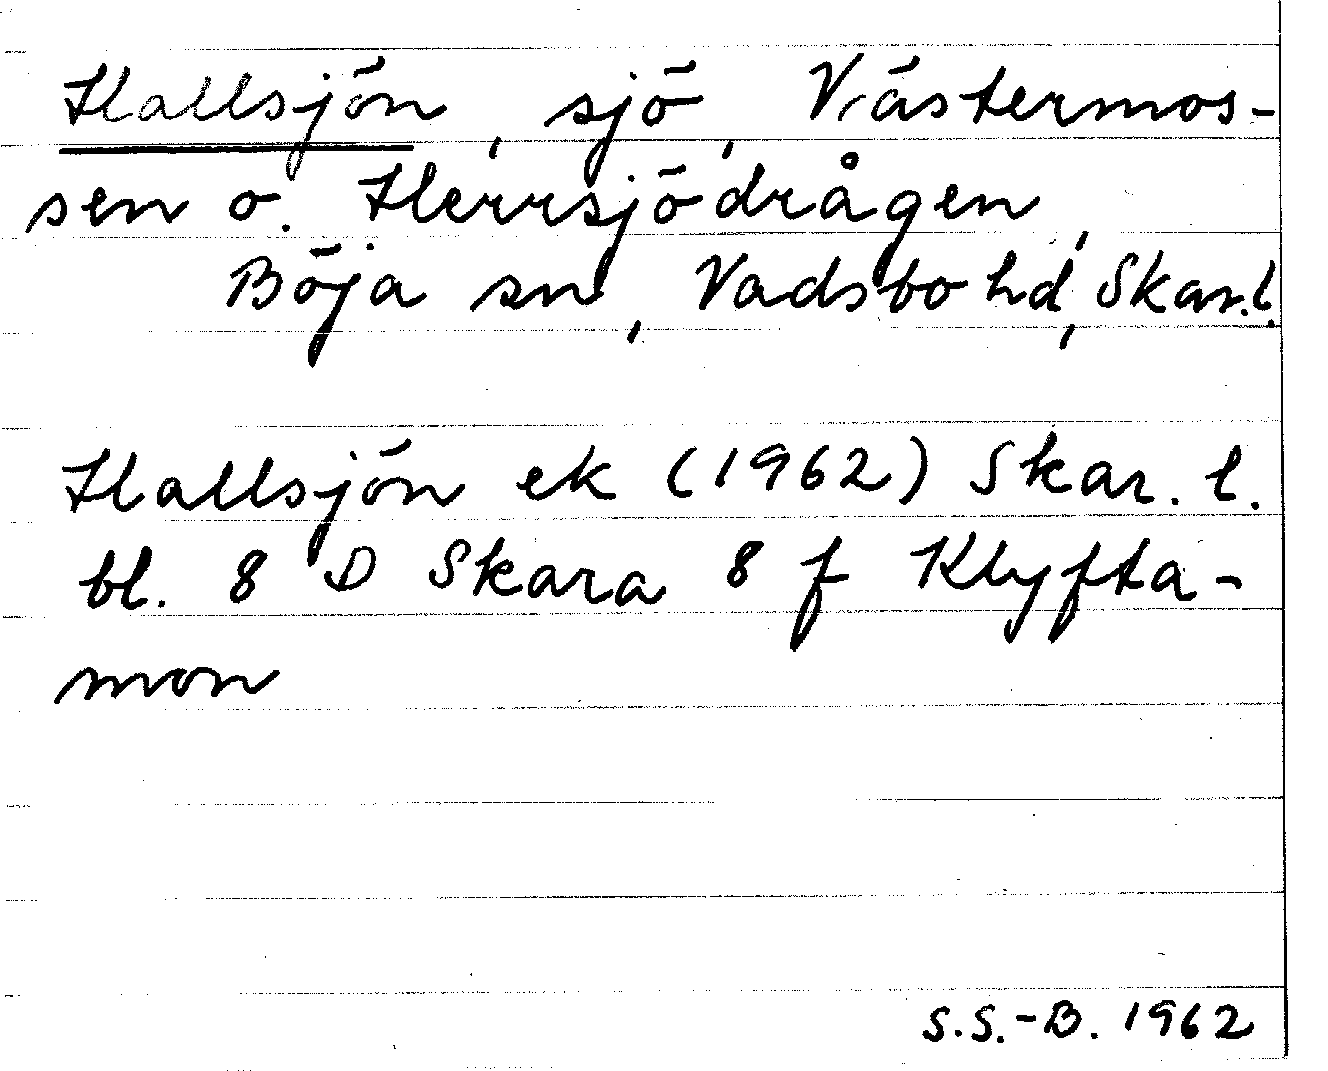 Hallsjön, sjö, Västermos-
sen o. Herrsjödrågen,
Böja sn, Vadsbo hd, Skar.l.
Hallsjön ek (1962) Skar. l.
bl. 8 D Skara 8 f Klyfta-
mon
S.S.-B. 1962